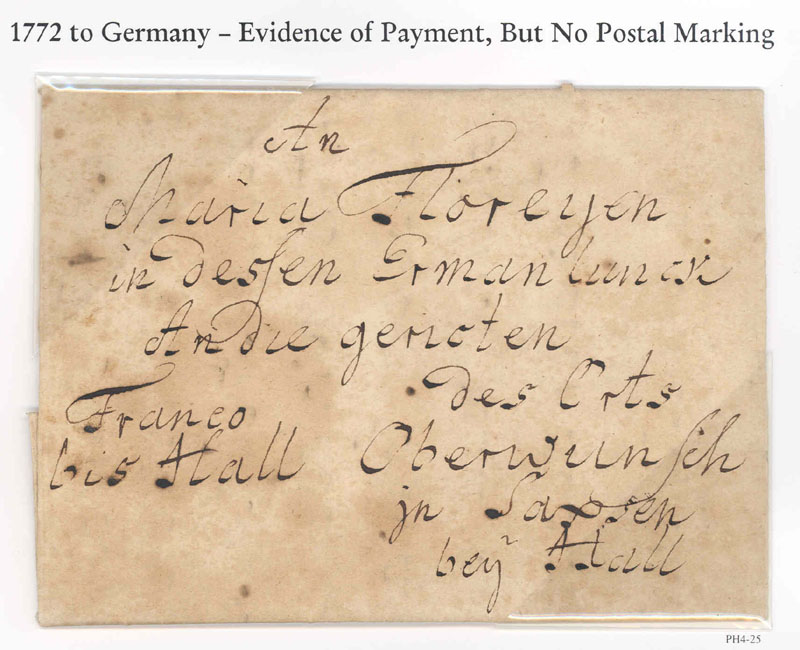 1772 to Germany – Evidence of Payment, But No Postal Marking
An
Maria Floreyen
in dessen Ermanlunck
An die gericten
des Orts
Franco
bis Hall
Oberwunsch
jn Saxsen
beÿ Hall
PH4-25